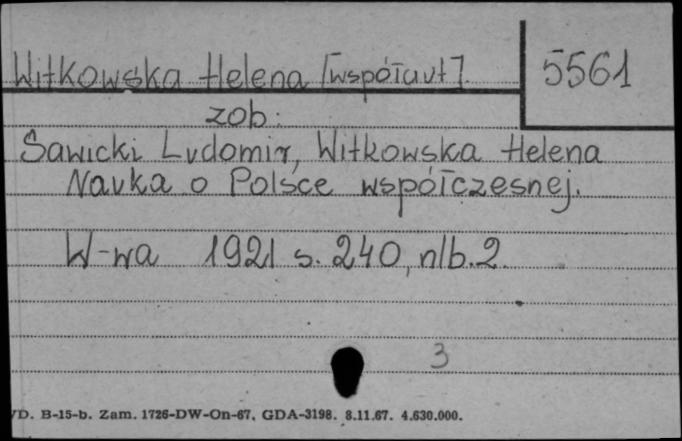 Witkowska Helena [współaut].
5561
zob:
Sawicki Ludomir, Witkowska Helena
Nauka o Polsce współczesnej.
W-wa 1921 s. 240, nlb. 2.
3
D. B-15-b. Zam. 1726-DW-On-67. GDA-3198. 8.11.67. 4.630.000.